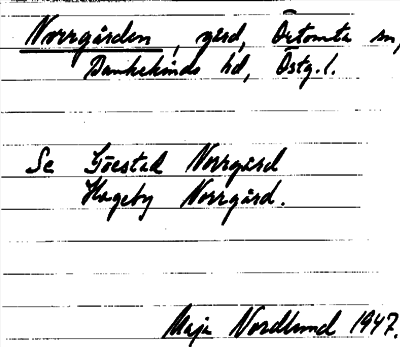 Norrgården, gård, Örtomta sn,
Bankekinds hd, Östg.l.
Se Göestad Norrgård
Hageby Norrgård.
Maja Nordlund 1947.